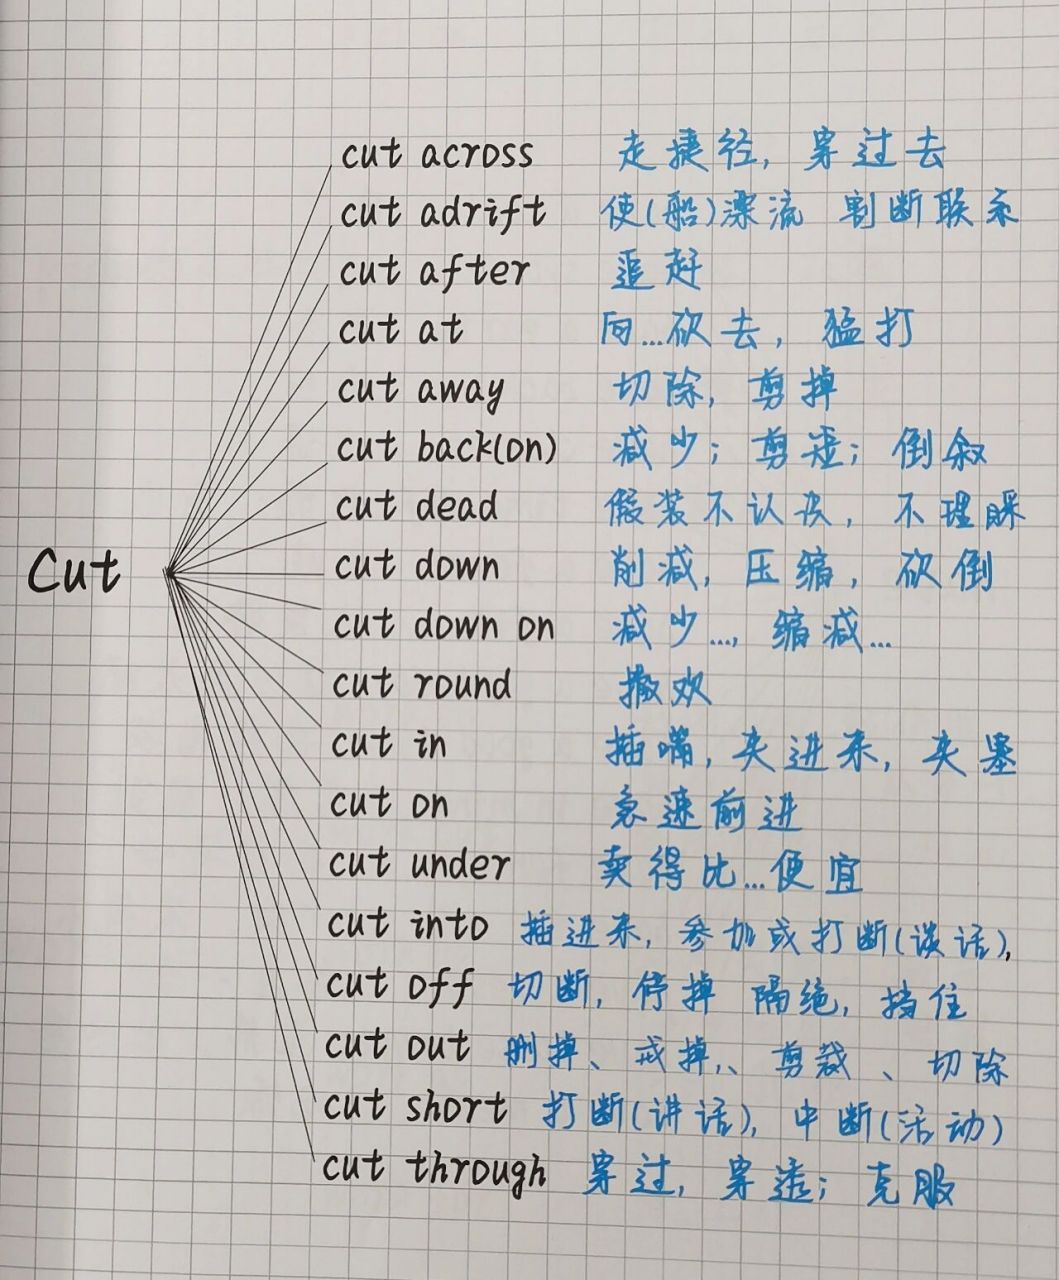 cut across 走捷径，穿过去
cut adrift 使(船)漂流 割断联系
cut after 追赶
cut at 向...砍去，猛打
cut away 切除，剪掉
cut back(on) 减少；剪短；倒叙
cut dead 假装不认识，不理睬
Cut
cut down 削减，压缩，砍倒
cut down on 减少...，缩减...
cut round 撒欢
cut in 插嘴，夹进来，夹塞
cut on 急速前进
cut under 卖得比...便宜
cut into 插进来，参加或打断(谈话)，
cut off 切断，停掉 隔绝，挡住
cut out 删掉、戒掉，、剪裁、切除
cut short 打断(讲话)，中断(活动)
cut through 穿过，穿透；克服